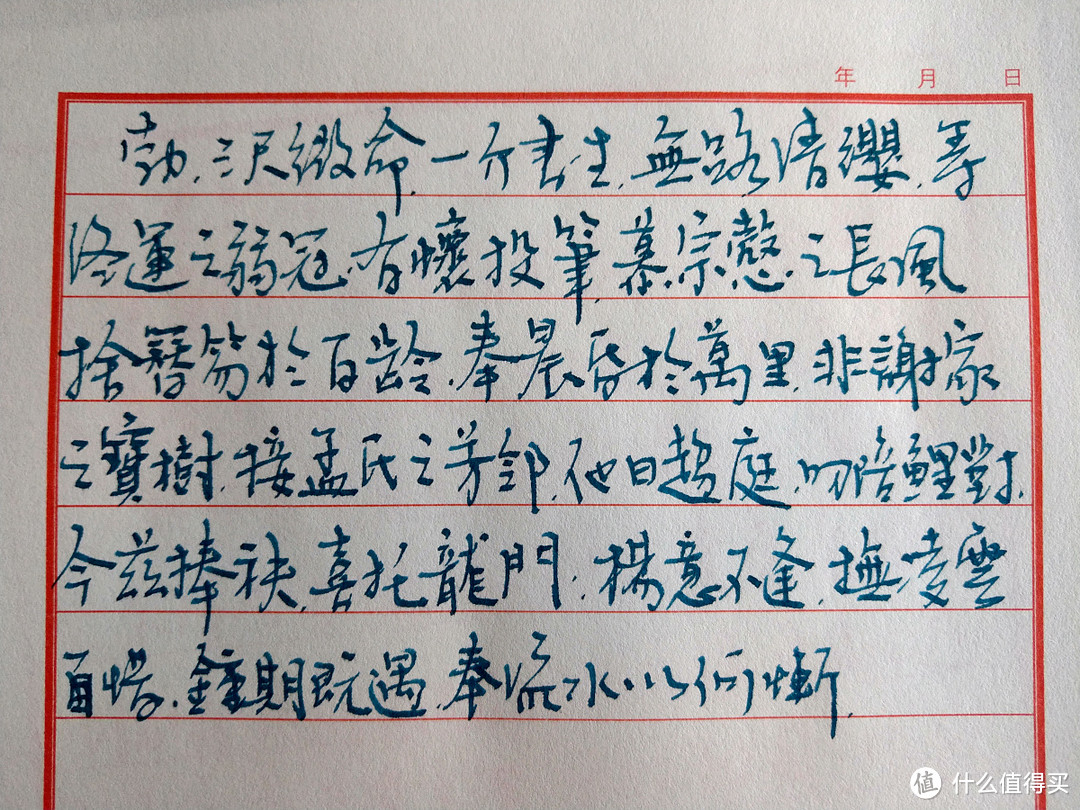 年 月 日
勃,三尺微命,一介書生,無路請纓,等
終運之弱冠,有懷投筆,慕宗愨之長風
捨簪笏於百齡,奉晨昏於萬里,非謝家
之寶樹,接孟氏之芳鄰,他日趨庭,叨陪鯉對,
今茲捧袂,喜托龍門,楊意不逢,撫凌雲
惜,鍾期既遇,奉流水以何慚,
值 什么值得买